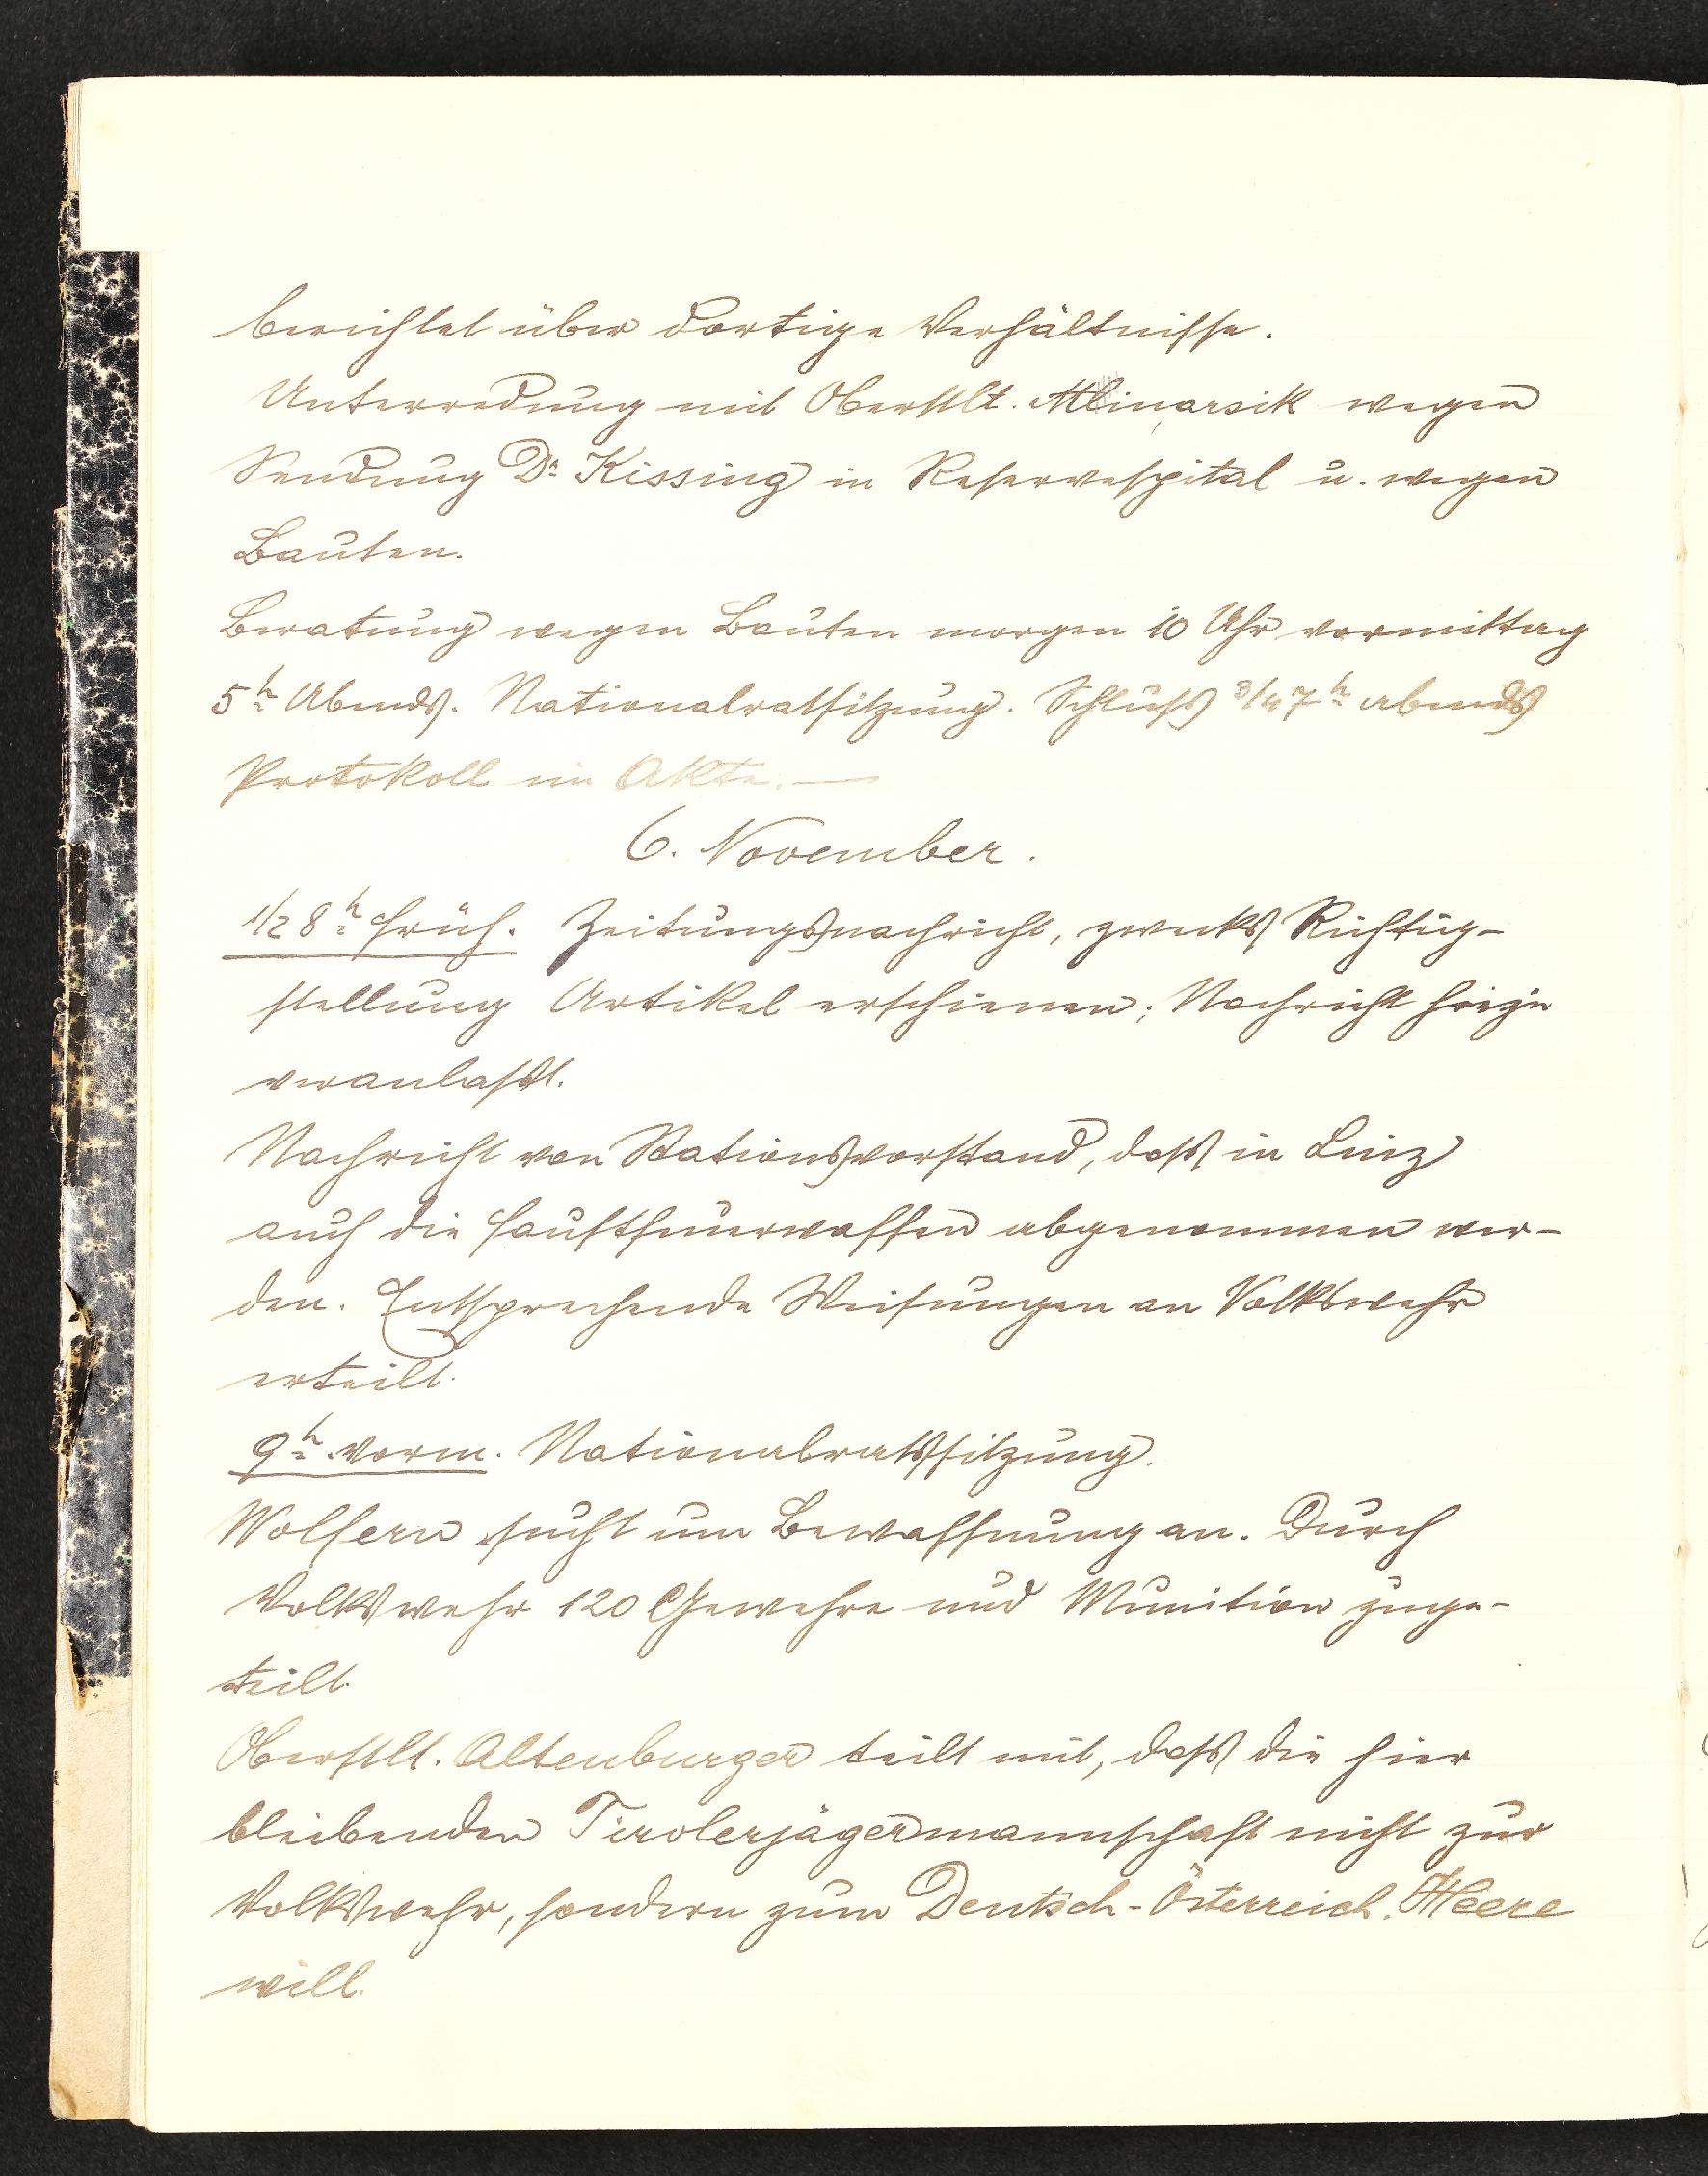 berichtet über dortige Verhältnisse.
Unterredung mit Oberstlt. Mlinarsik wegen
Sendung Dr. Kissing in Reservespital u. wegen
Bauten.
Beratung wegen Bauten morgen 10 Uhr vormittag
5h Abends. Nationalratsitzung. Schluss 3/4 7h abends
Protokoll im Akte. —
6. November.
1/2 8h früh. Zeitungsnachricht, zwecks Richtig-
stellung Artikel erschienen; Nachricht hiezu
veranlasst.
Nachricht von Stationsvorstand, dass in Linz
auch die Faustfeuerwaffen abgenommen wer-
den. Entsprechende Weisungen an Volkswehr
erteilt.
9h vorm. Nationalratssitzung.
Wolfern sucht um Bewaffnung an. Durch
Volkswehr 120 Gewehre und Munition zuge-
teilt.
Oberstlt. Altenburger teilt mit, dass die hier
bleibenden Tirolerjägermannschaft nicht zur
Volkswehr, sondern zum Deutsch-Österreich. Heere
will.